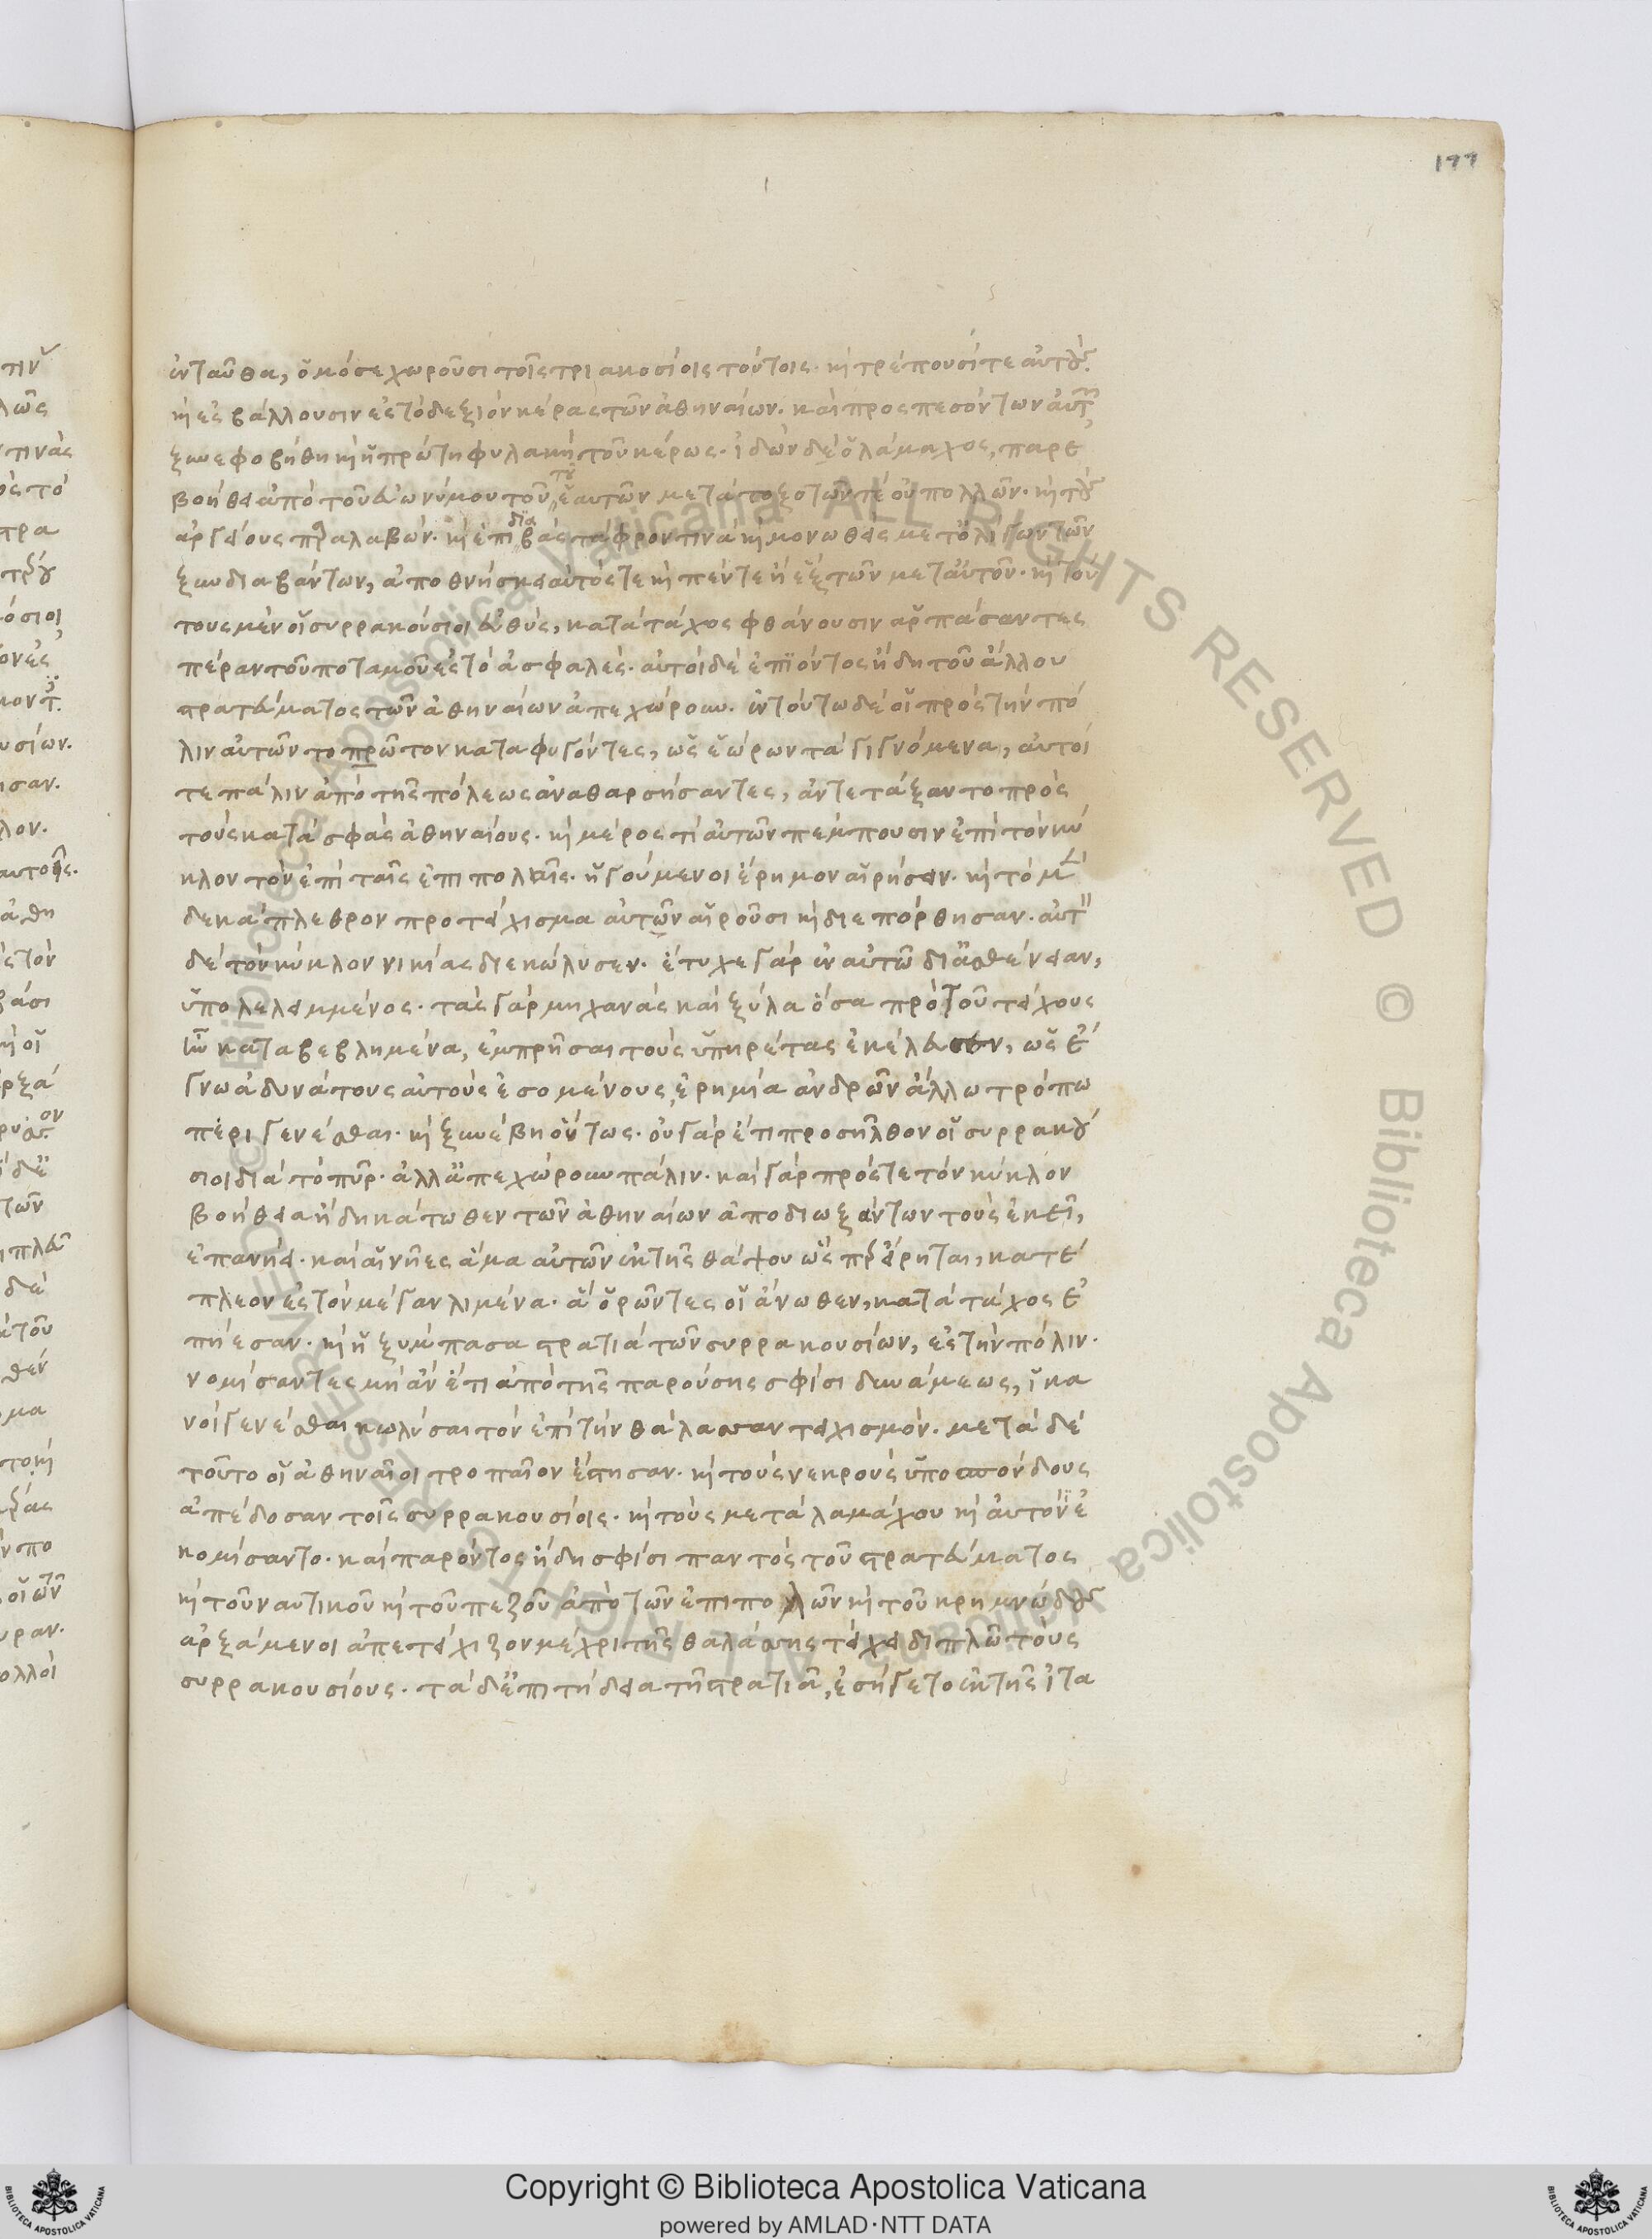 177
ἐνταῦθα, ὁμόσε χωροῦσι τοῖς τριακοσίοις τούτοις. καὶ τρέπουσί τε αὐτούς.
καὶ ἐσβάλλουσιν ἐς τὸ δεξιὸν κέρας τῶν ἀθηναίων. καὶ προσπεσόντων αὐτῶν,
ξυνεφοβήθη καὶ ἡ πρώτη φυλακὴ τοῦ κέρως. ἰδὼν δὲ ὁ λάμαχος, παρε
βοήθει ἀπὸ τοῦ εὐωνύμου τοῦ ἑαυτῶν μετὰ τοξοτῶν τε οὐ πολλῶν. καὶ τοὺς
ἀργείους παραλαβών. καὶ ἐπιδιαβὰς τάφρον τινὰ καὶ μονωθεὶς μετ' ὀλίγων τῶν
ξυνδιαβάντων, ἀποθνήσκει αὐτός τε καὶ πέντε ἢ ἓξ τῶν μετ' αὐτοῦ. καὶ τού
τους μὲν οἱ συρρακούσιοι εὐθύς, κατὰ τάχος φθάνουσιν ἁρπάσαντες
πέραν τοῦ ποταμοῦ ἐς τὸ ἀσφαλές. αὐτοὶ δὲ ἐπϊόντος ἤδη τοῦ ἄλλου
στρατεύματος τῶν ἀθηναίων ἀπεχώρουν. ἐν τούτω δὲ οἱ πρὸς τὴν πό
λιν αὐτῶν τὸ πρῶτον καταφυγόντες, ὡς ἑώρων τὰ γιγνόμενα, αὐτοί
τε πάλιν ἀπὸ τῆς πόλεως ἀναθαρσήσαντες, ἀντετάξαντο πρὸς
τοὺς κατὰ σφᾶς ἀθηναίους. καὶ μέρος τι αὐτῶν πέμπουσιν ἐπὶ τὸν κύ
κλον τὸν ἐπὶ ταῖς ἐπιπολαῖς. ἡγούμενοι ἔρημον αἱρήσειν. καὶ τὸ μὲν
δεκάπλεθρον προτείχισμα αὐτῶν αἱροῦσι καὶ διεπόρθησαν. αὐτὸν
δὲ τὸν κύκλον νικίας διεκώλυσεν. ἔτυχε γὰρ ἐν αὐτῶ δι' ἀσθένειαν,
ὑπολελειμμένος. τὰς γὰρ μηχανὰς καὶ ξύλα ὅσα πρὸ τοῦ τείχους
ἦν καταβεβλημένα, ἐμπρῆσαι τοὺς ὑπηρέτας ἐκέλευσεν, ὡς ἔ
γνω ἀδυνάτους αὐτοὺς ἐσομένους, ἐρημία ἀνδρῶν ἄλλω τρόπω
περιγενέσθαι. καὶ ξυνέβη οὕτως. οὐ γὰρ ἔτι προσῆλθον οἱ συρρακού
σιοι διὰ τὸ πῦρ. ἀλλ' ἀπεχώρουν πάλιν. καὶ γὰρ πρός τε τὸν κύκλον
βοήθεια ἤδη κάτωθεν τῶν ἀθηναίων ἀποδιωξάντων τοὺς ἐκεῖ,
ἐπανήει. καὶ αἱ νῆες ἅμα αὐτῶν ἐκ τῆς θάψου ὥσπερ εἴρηται, κατέ
πλεον ἐς τὸν μέγαν λιμένα. ἃ ὁρῶντες οἱ ἄνωθεν, κατὰ τάχος ἀ
πήεσαν. καὶ ἡ ξύμπασα στρατιὰ τῶν συρρακουσίων, ἐς τὴν πόλιν.
νομίσαντες μὴ ἂν ἔτι ἀπὸ τῆς παρούσης σφίσι δυνάμεως, ἱκα
νοὶ γενέσθαι κωλῦσαι τὸν ἐπὶ τὴν θάλασσαν τειχισμόν. μετὰ δὲ
τοῦτο οἱ ἀθηναῖοι τροπαῖον ἔστησαν. καὶ τοὺς νεκροὺς ὑποσπόνδους
ἀπέδοσαν τοῖς συρρακουσίοις. καὶ τοὺς μετὰ λαμάχου καὶ αὐτὸν ἐ
κομίσαντο. καὶ παρόντος ἤδη σφίσι παντὸς τοῦ στρατεύματος
καὶ τοῦ ναυτικοῦ καὶ τοῦ πεζοῦ ἀπὸ τῶν ἐπιπολῶν καὶ τοῦ κρημνώδους
ἀρξάμενοι ἀπετείχιζον μέχρι τῆς θαλάσσης τείχει διπλῶ τοὺς
συρρακουσίους. τὰ δ' ἐπιτήδεια τῆ στρατιᾶ, ἐσήγετο ἐκ τῆς ἰτα
Copyright © Biblioteca Apostolica Vaticana
powered by AMLAD·NTT DATA